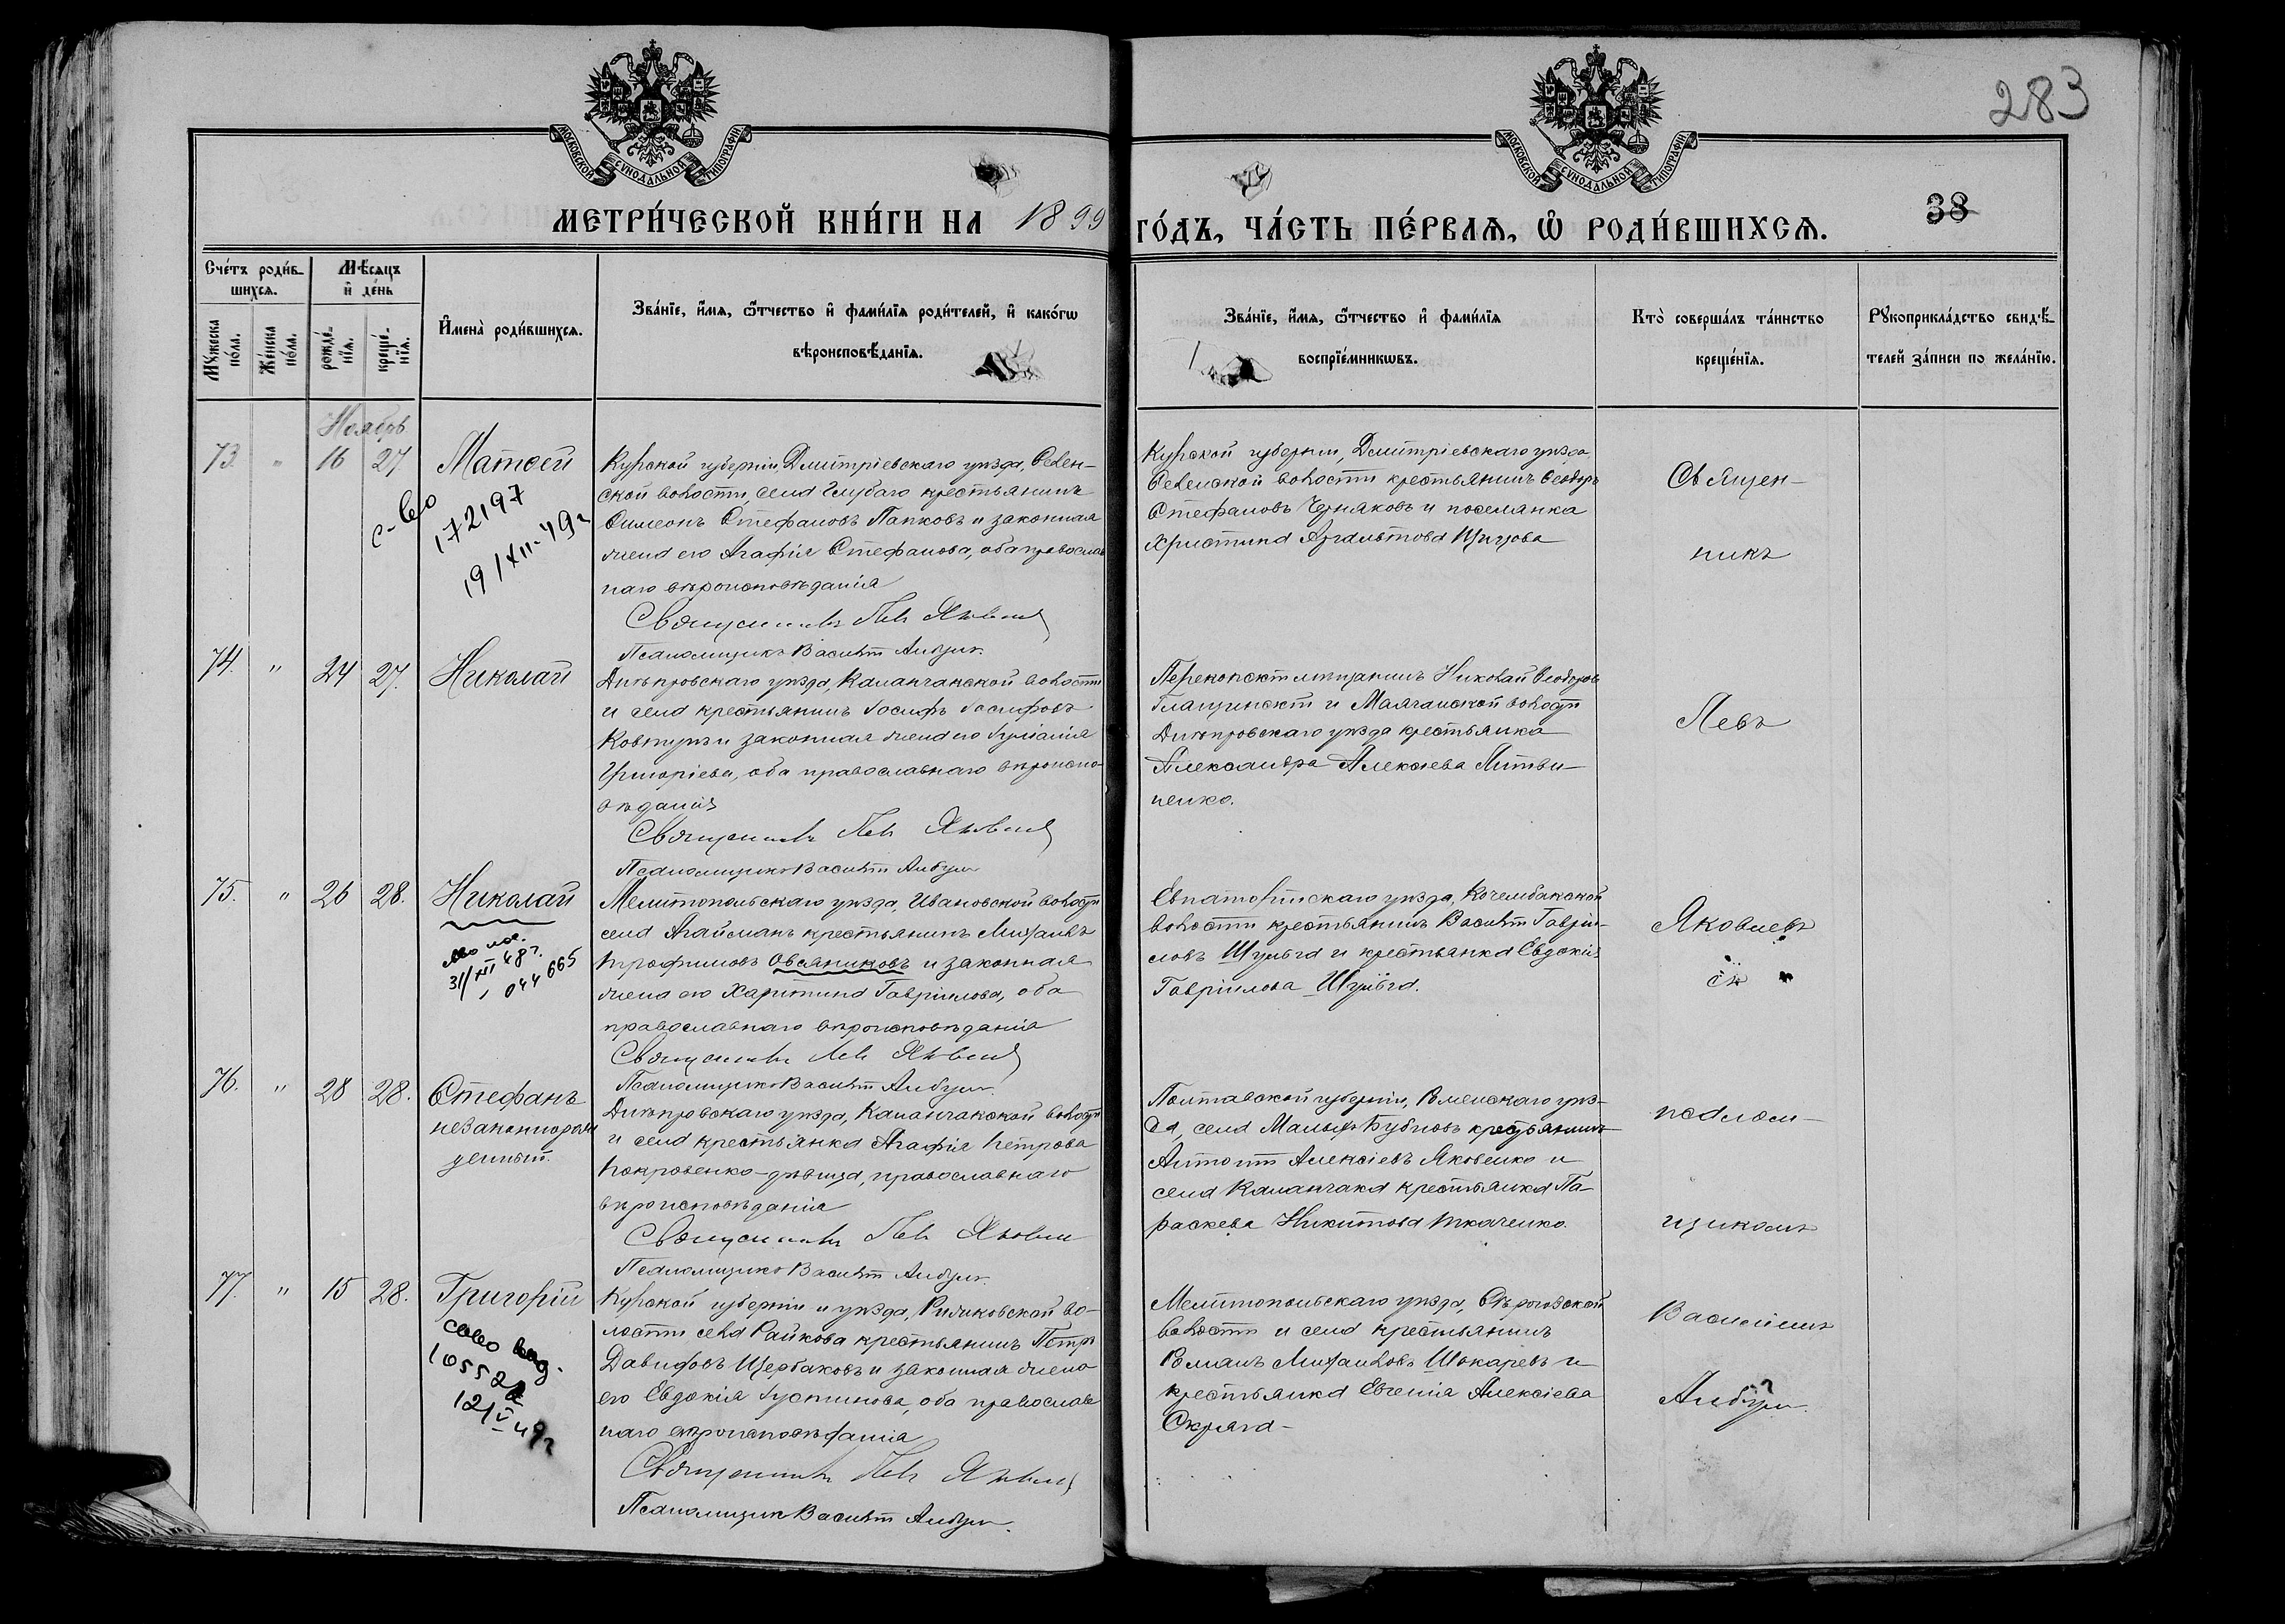 283
МОСКОВСКОЙ СѴНОДАЛЬНОЙ ТИПОГРАФІИ
МОСКОВСКОЙ СѴНОДАЛЬНОЙ ТИПОГРАФІИ
МЕТРИ́ЧЕСКОЙ КНИ́ГИ НА 1899
ГО́ДЪ, ЧА́СТЬ ПЕ́РВАЯ, Ѡ РОДИ́ВШИХСЯ.
38
Сче́тъ роди́в-
шихся.
Мѣ́сяцъ
и де́нь
Мꙋжеска
по́ла.
Же́нска
по́ла.
рожде́-
нїя.
креще́-
нїя.
Имена̀ роди́вшихся.
Зва́нїе, и́мя, ѻ́тчество и фами́лїя роди́телей, и како́гѡ
вѣроисповѣ́данїя.
Зва́нїе, и́мя, ѻ́тчество и фами́лїя
воспрїе́мникѡвъ.
Кто̀ соверша́лъ та́инство
креще́нїя.
Рꙋкоприкла́дство свидѣ́-
телей за́писи по жела́нїю.
Ноябрь
73. " 16 27 Матѳей
с-во
172197
19/XII-49г
Курской губерніи, Дмитріевскаго уѣзда, Селен-
ской волости, села крестьянинъ
Симеонъ Стефановъ Папковъ и законная
жена его Агафія Стефанова, оба православ
наго вѣроисповѣданія
Священникъ Левъ Яковлев
Псаломщикъ Василій Анбуж
Курской губерніи, Дмитріевскаго уѣзда,
Селенской волости крестьянинъ Ѳеодоръ
Стефановъ Черняковъ и поселянка
Христина
Священ-
никъ
74. " 24 27. Николай
Днѣпровскаго уѣзда, Каланчакской волости
и села крестьянинъ Іосифъ Іосифовъ
Ковтунъ и законная жена его Іуліанія
Григоріева, оба православнаго вѣроиспо-
вѣданія
Священникъ Левъ Яковлев
Псаломщикъ Василій
Перекопскій мѣщанинъ Николай Ѳеодоров
и Маячанской волости
Днѣпровскаго уѣзда крестьянка
Александра Алексѣева Литви-
ненко.
Левъ
75. " 26 28. Николай
31/XII 48г.
1 044665
Мелитопольскаго уѣзда, Ивановской волости
села Агайманъ крестьянинъ Михаилъ
Трофимовъ Овсяниковъ и законная
жена его Харитина Гавріилова, оба
православнаго вѣроисповѣданія
Священникъ Левъ Яковлев
Псаломщикъ Василій
Евпаторійскаго уѣзда, Кочембакской
волости крестьянинъ Василій Гавріи-
ловъ Шульга и крестьянка Евдокія
Гавріилова Шульга.
Яковлевъ
съ
76. " 28 28. Стефанъ
незаконнорож
денный.
Днѣпровскаго уѣзда, Каланчакской волости
и села крестьянка Агафія Петрова
Покровенко - дѣвица, православнаго
вѣроисповѣданія
Священникъ Левъ Яковлев
Псаломщикъ Василій
Полтавской губерніи, Роменскаго уѣз-
да, села Малыхъ Бубновъ крестьянинъ
Антоній Алексіевъ Яковенко и
села Каланчака крестьянка Па-
раскева Никитова Ткаченко.
псалом-
щикомъ
77. " 15 28. Григорій
105522
12/V 49г
Курской губерніи и уѣзда, Рышковской во-
лости села Райкова крестьянинъ Петръ
Давидовъ Щербаковъ и законная жена
его Евдокія Іустинова, оба православ
наго вѣроисповѣданія
Священникъ Левъ Яковлев
Псаломщикъ Василій
Мелитопольскаго уѣзда, Сѣрогозской
волости и села крестьянинъ
Романъ Михаиловъ Шокаревъ и
крестьянка Евгенія Алексіева
Скряга-
Василіемъ